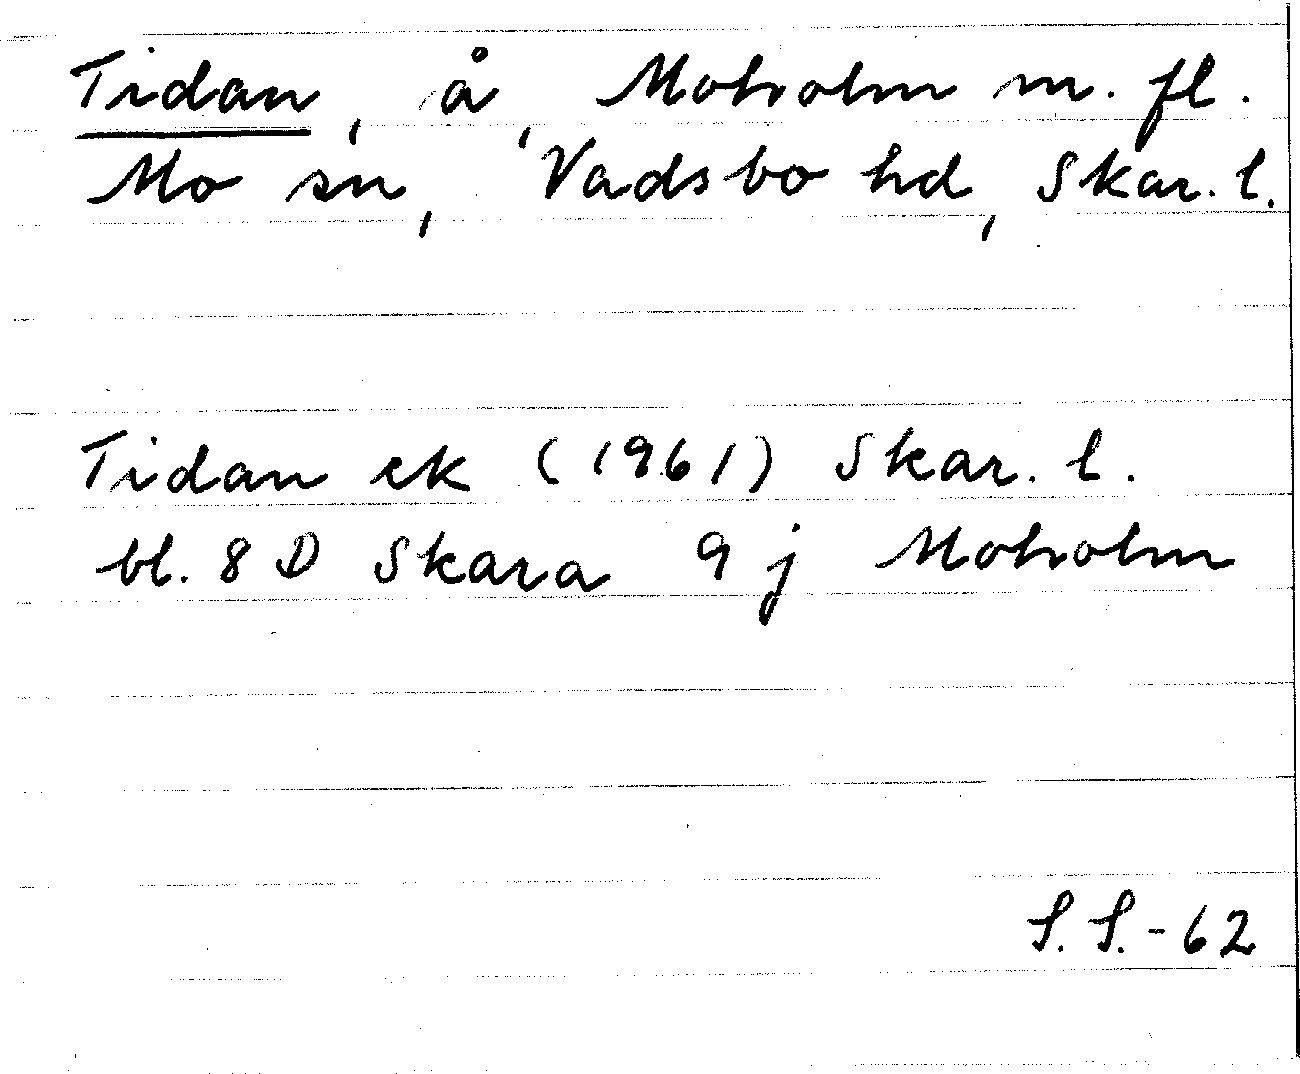 Tidan, å, Moholm m. fl.
Mo sn, Vadsbo hd, Skar. l.
Tidan ek (1961) Skar. l.
bl. 8 D Skara 9 j Moholm
S. S. - 62